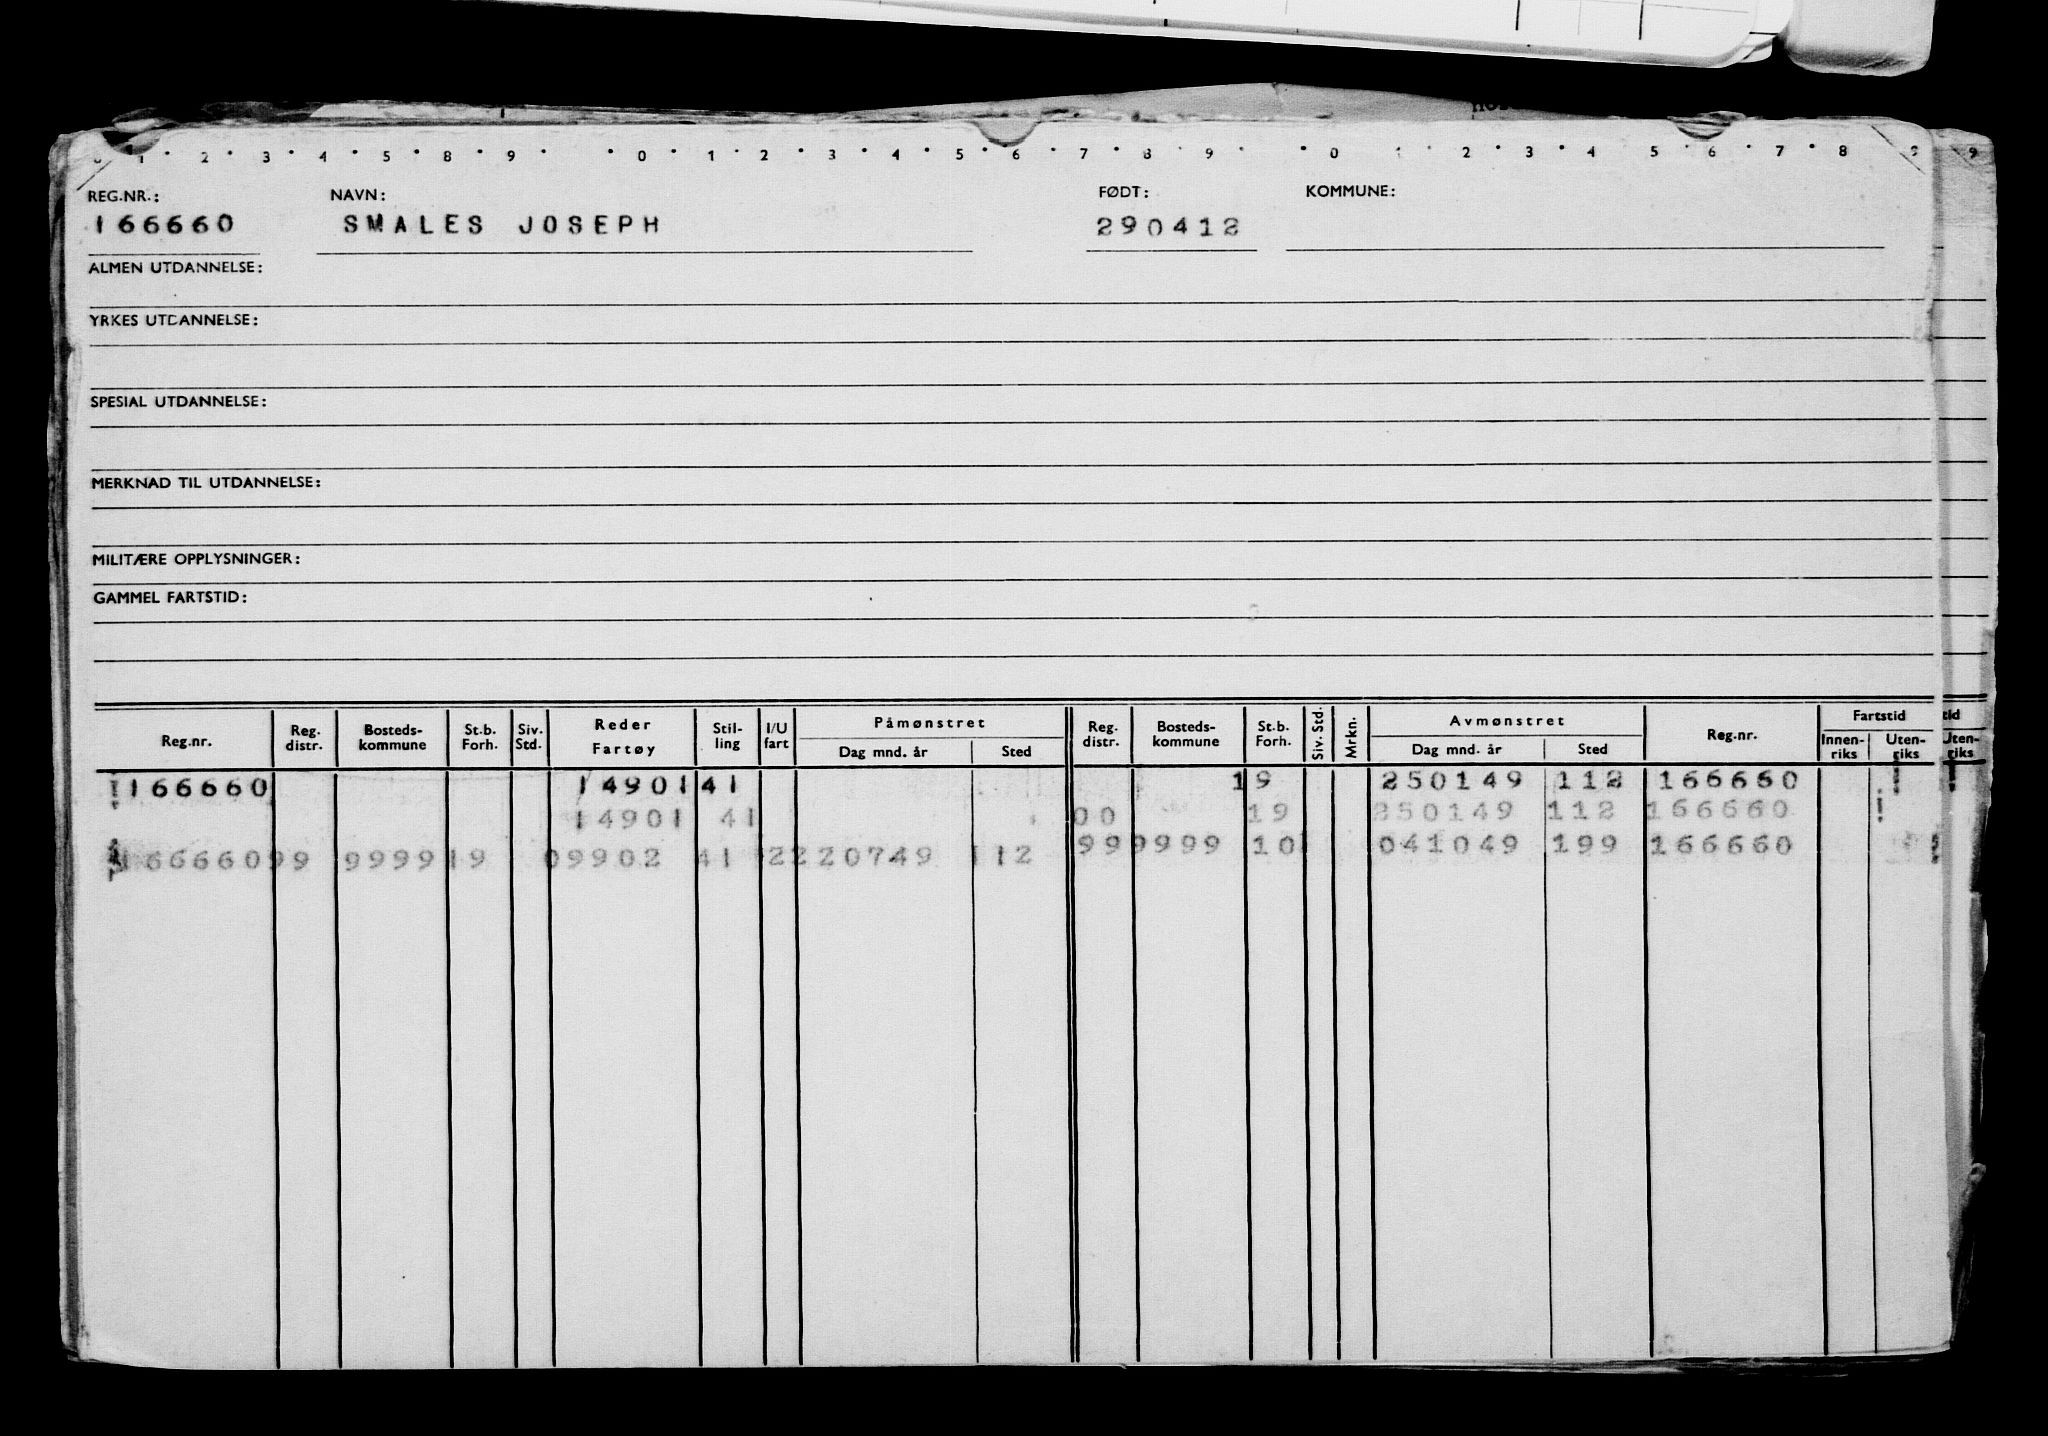 1 2 3 4 5 8 9 0 1 2 3 4 5 6 7 8 9 0 1 2 3 4 5 6 7 8 9 9
REG.NR.: NAVN: FØDT: KOMMUNE:
166660 SMALES JOSEPH 290412
ALMEN UTDANNELSE:
YRKES UTDANNELSE:
SPESIAL UTDANNELSE:
MERKNAD TIL UTDANNELSE:
MILITÆRE OPPLYSNINGER:
GAMMEL FARTSTID:
Reg.nr. Reg. distr. Bosteds-kommune St.b. Forh. Siv. Std. Reder Fartøy Stil-ling I/U fart Påmønstret Dag mnd. år Sted Reg. distr. Bosteds-kommune St.b. Forh. Siv. Std. Mrkn. Avmønstret Dag mnd. år Sted Reg.nr. Fartstid Innen-riks Uten-riks tid Uten-riks
166660 14901 41 19 250149 112 166660
14901 41 00 19 250149 112 166660
166660 99 9999 19 09902 41 2 220749 112 99 9999 10 041049 199 166660